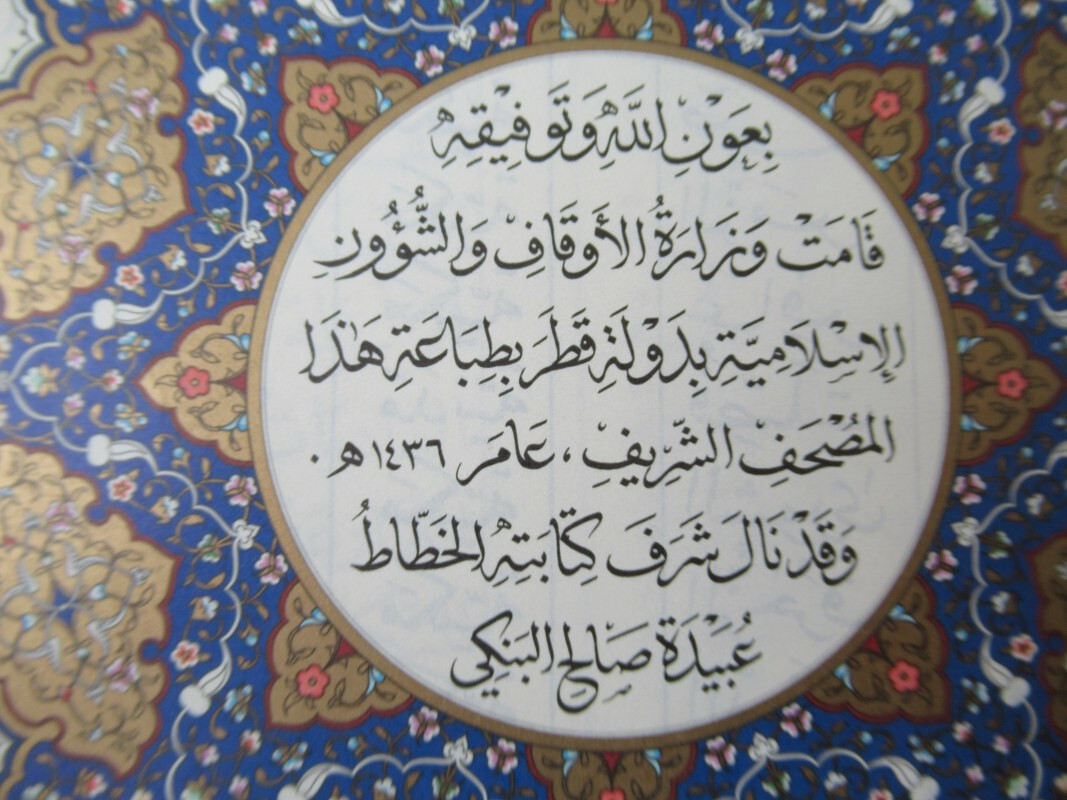 بِعَوْنِ اللَّهِ وَتَوفِيْقِهِ
قَامَتْ وَزَارَةُ الأَوقَافِ وَالشُّؤُونِ
الإِسْلَامِيَّةِ بِدَوْلَةِ قَطَرَ بِطِبَاعَةِ هَٰذَا
المُصْحَفِ الشَّرِيفِ، عَامَ ١٤٣٦ هـ.
وَقَدْ نَالَ شَرَفَ كِتَابَتِهِ الخَطَّاطُ
عُبَيْدَة صَالِح البَنكِي